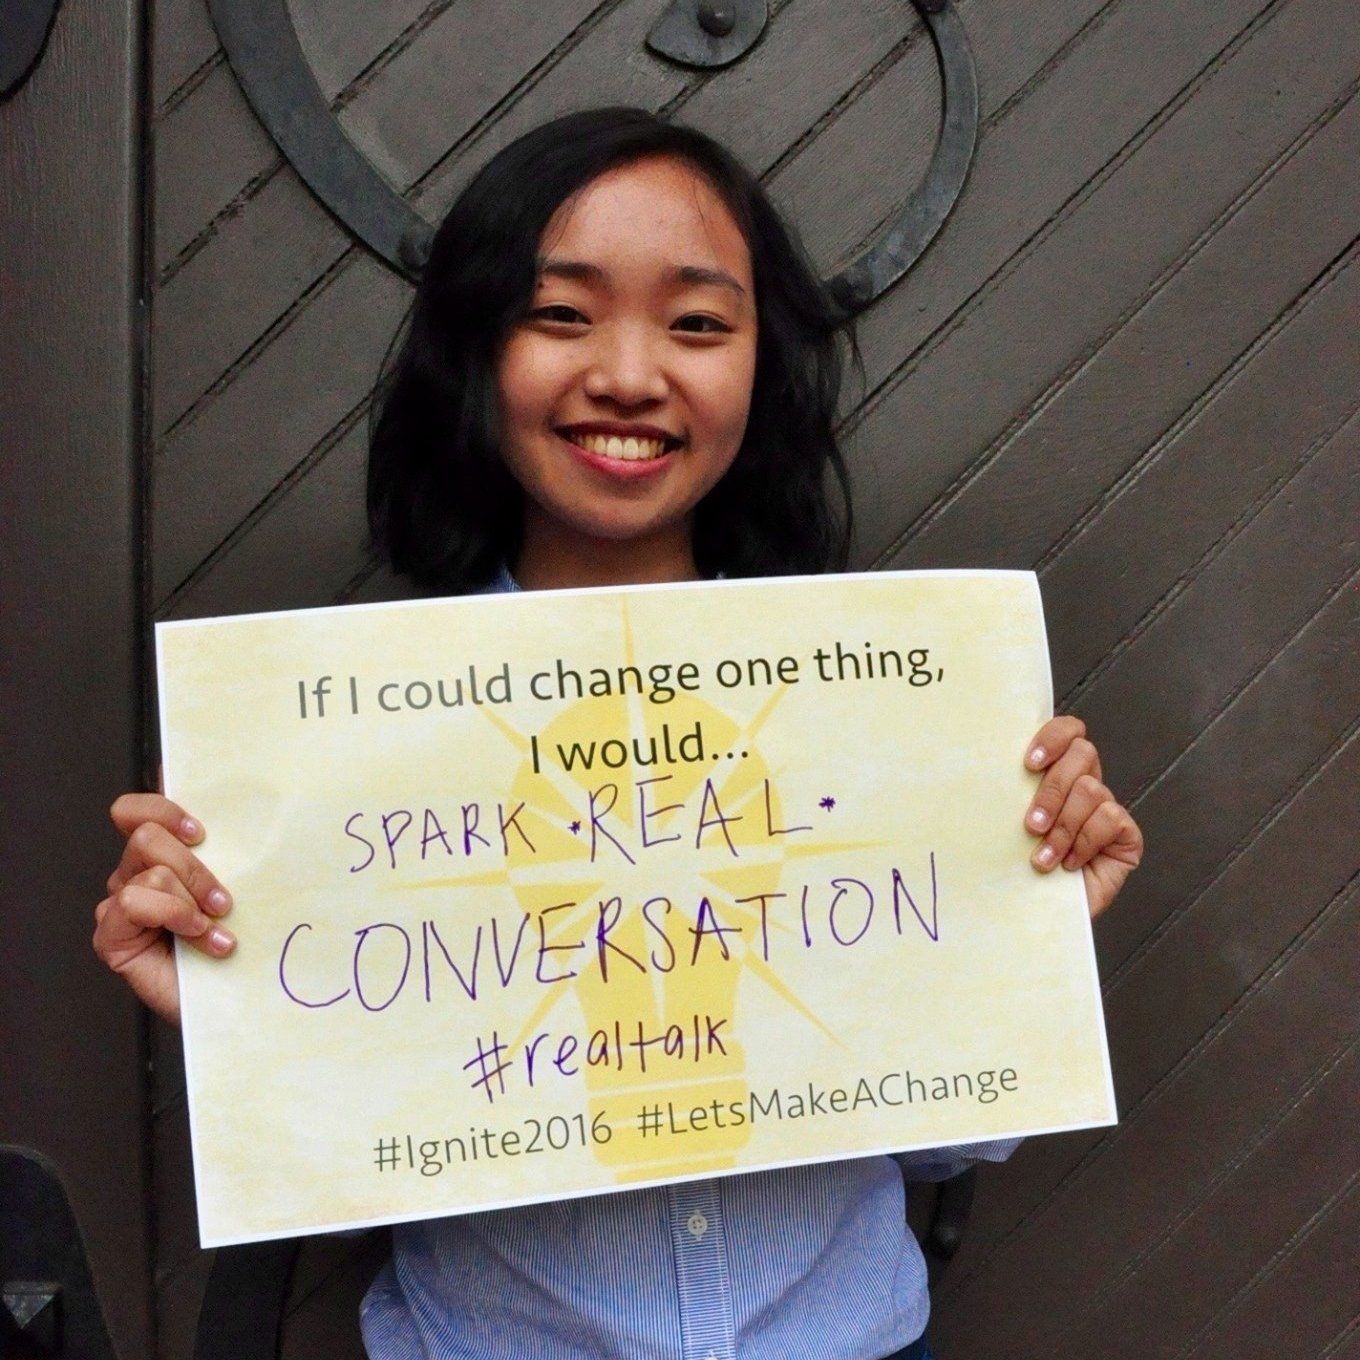 If I could change one thing,
I would...
SPARK *REAL*
CONVERSATION
#realtalk
#Ignite2016 #LetsMakeAChange